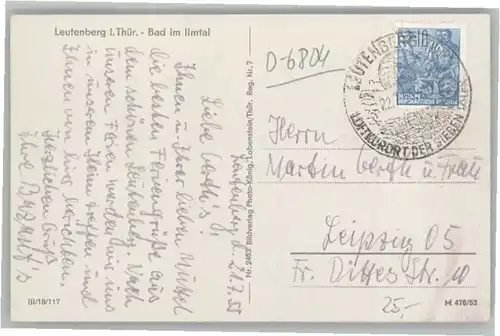 Leutenberg i.Thür. - Bad im Ilmtal
Leutenberg d. 21.7.55
Liebe Berth's!
Ihnen u. Ihrer lieben Muttel
die besten Feriengrüße aus
dem schönen Leutenberg. Nach
unseren Ferien werden wir uns
in unserem Heim treffen und
Ihnen von hier berichten.
Herzlichen Gruß
Ihre
Nr. 2453 Bildverlag Photo-König, Lobenstein/Thür. Reg. Nr. 7
III/18/117
D-6804
LEUTENBERG
LUFTKURORT DER SIEBEN TÄLER
Herrn
Martin Berth u. Frau
Leipzig O5
Fr. Dittes Str. 10
25,-
M 476/53